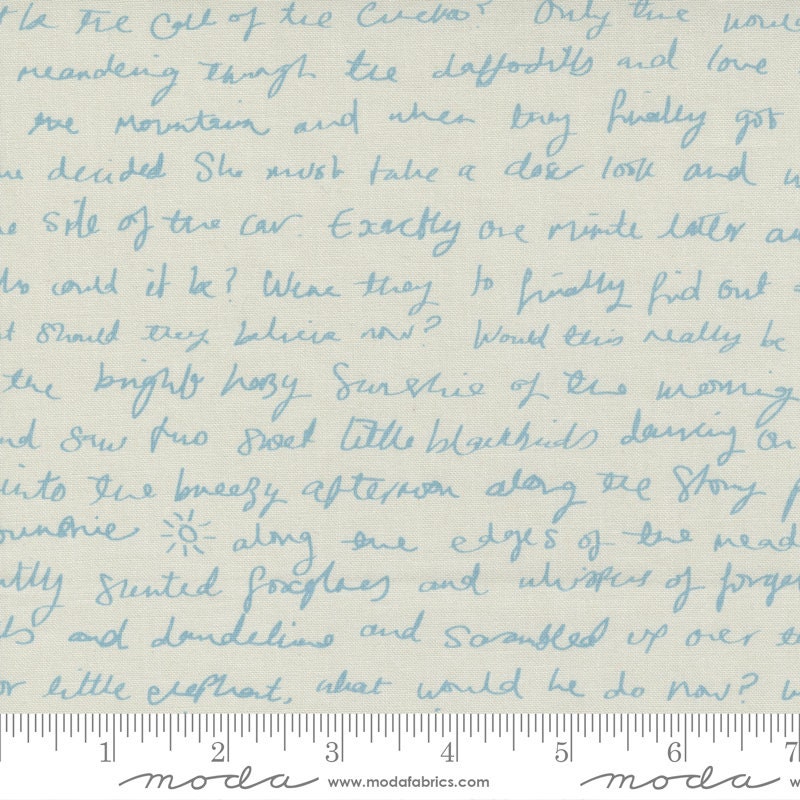 the Call of the Cuckoo? Only time would
meandering through the daffodills and love
the mountain and when they finally got
decided She must take a closer look and
side of the car. Exactly one minute later
could it be? Were they to finally find out
should they believe now? Would this really be
the bright hazy Sunshine of the morning
and saw two sweet little blackbirds dancing on
into the breezy afternoon along the Stony
Sunshine along the edges of the
scented foxgloves and whispers of
and dandelions and scrambled up over
little elephant, what would he do now?
1 2 3 4 5 6 7
moda www.modafabrics.com moda